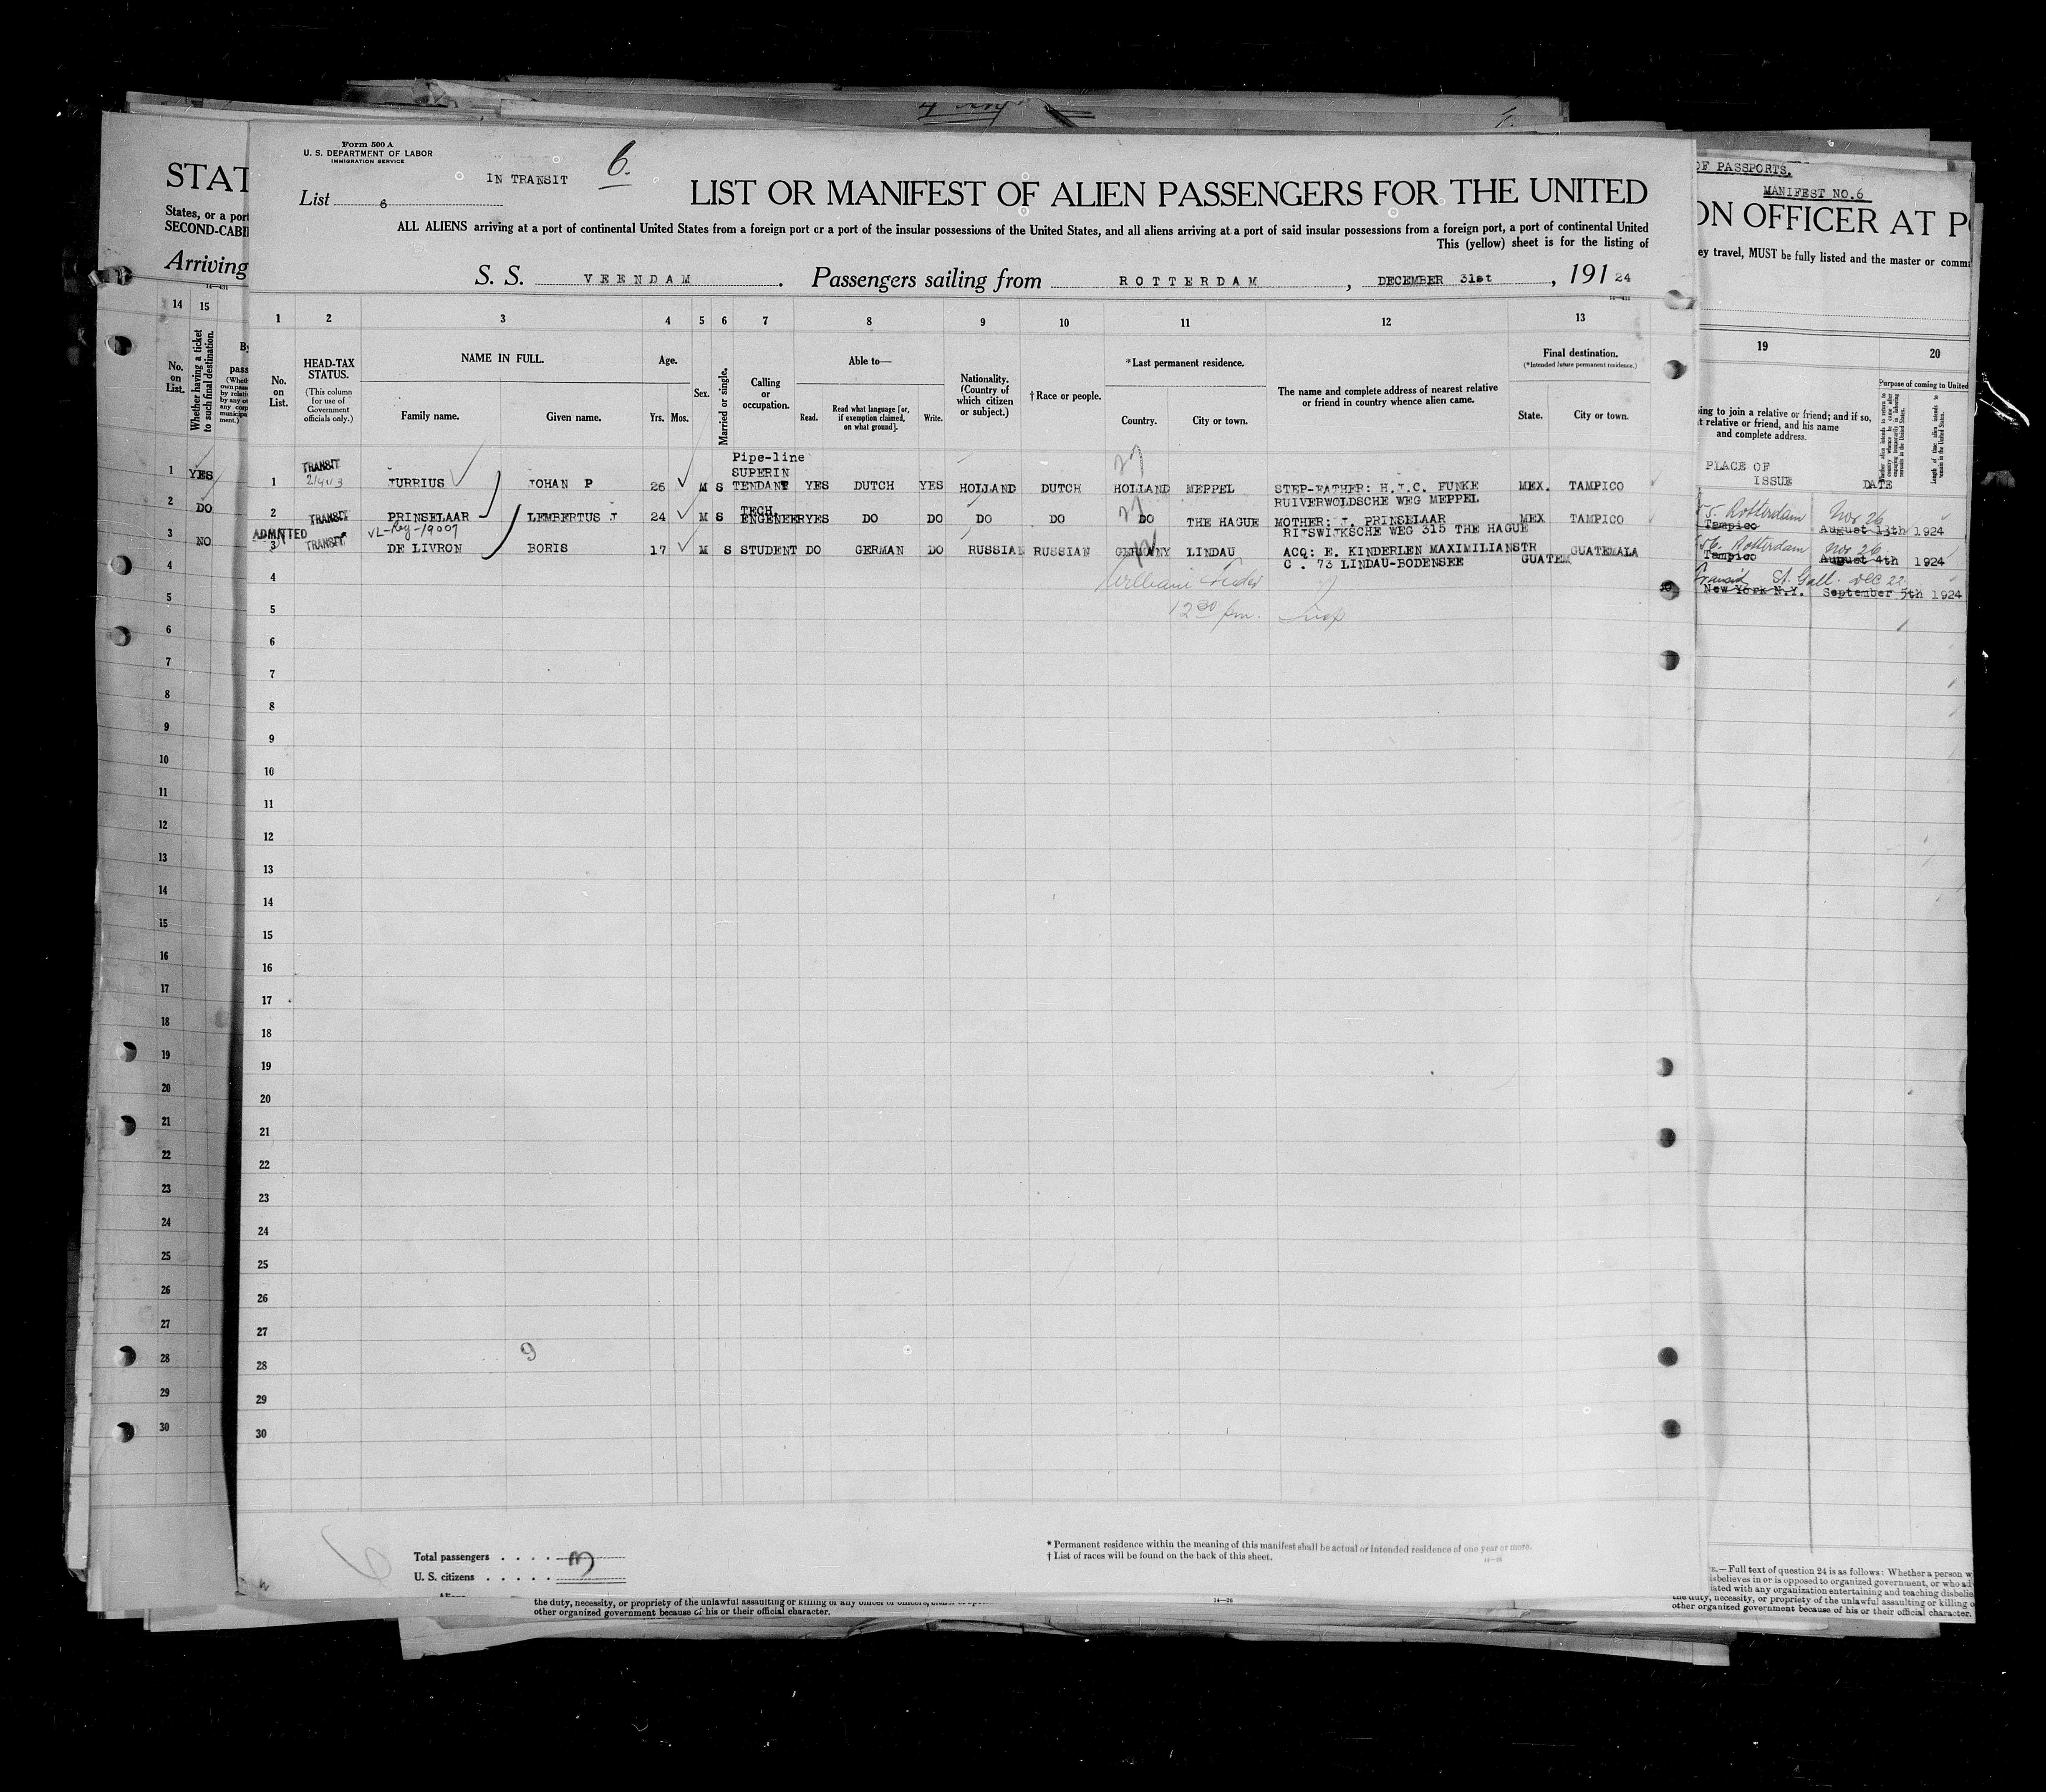 Form 500 A
U. S. DEPARTMENT OF LABOR
IMMIGRATION SERVICE
IN TRANSIT
6.
List 6
LIST OR MANIFEST OF ALIEN PASSENGERS FOR THE UNITED
ALL ALIENS arriving at a port of continental United States from a foreign port or a port of the insular possessions of the United States, and all aliens arriving at a port of said insular possessions from a foreign port, a port of continental United
This (yellow) sheet is for the listing of
S. S. VEENDAM. Passengers sailing from ROTTERDAM, DECEMBER 31st, 191 24
1 2 3 4 5 6 7 8 9 10 11 12 13
No. on List.
HEAD-TAX STATUS.
(This column for use of Government officials only.)
NAME IN FULL.
Family name. Given name.
Age.
Yrs. Mos.
Sex.
Married or single.
Calling or occupation.
Able to—
Read. Read what language [or, if exemption claimed, on what ground]. Write.
Nationality. (Country of which citizen or subject.)
†Race or people.
*Last permanent residence.
Country. City or town.
The name and complete address of nearest relative or friend in country whence alien came.
Final destination.
(*Intended future permanent residence.)
State. City or town.
1 TRANSIT JURRIUS JOHAN P 26 M S Pipe-line SUPERIN TENDANT YES DUTCH YES HOLLAND DUTCH HOLLAND MEPPEL STEP-FATHER: H.J.C. FUNKE RUIVERWOLDSCHE WEG MEPPEL MEX. TAMPICO
2 TRANSIT PRINSELAAR LEMBERTUS J 24 M S TECH. ENGENEER YES DO DO DO DO DO THE HAGUE MOTHER: J. PRINSELAAR RIJSWIJKSCHE WEG 315 THE HAGUE MEX TAMPICO
vL-Reg-19007
ADMITTED
3 TRANSIT DE LIVRON BORIS 17 M S STUDENT DO GERMAN DO RUSSIAN RUSSIAN GERMANY LINDAU ACQ: E. KINDERLEN MAXIMILIANSTR C . 73 LINDAU-BODENSEE GUATEM GUATEMALA
4
5
12 30 pm.
6
7
8
9
10
11
12
13
14
15
16
17
18
19
20
21
22
23
24
25
26
27
28
9
29
30
Total passengers . . . . 3
U. S. citizens . . . . .
* Permanent residence within the meaning of this manifest shall be actual or intended residence of one year or more.
† List of races will be found on the back of this sheet.
14—26
the duty, necessity, or propriety of the unlawful assaulting or killing of any officer or officers,
other organized government because of his or their official character.
STAT
States, or a port
SECOND-CABI
Arriving
14 15
No. on List.
Whether having a ticket to such final destination.
1 YES
2 DO
3 NO
4
5
6
7
8
9
10
11
12
13
14
15
16
17
18
19
20
21
22
23
24
25
26
27
28
29
30
OF PASSPORTS.
MANIFEST NO.6
ON OFFICER AT P
ey travel, MUST be fully listed and the master or comm
19 20
Purpose of coming to United
ing to join a relative or friend; and if so,
t relative or friend, and his name
and complete address.
Length of time alien intends to remain in the United States.
PLACE OF ISSUE DATE
Rotterdam Nov 26
Tampico August 13th 1924
Rotterdam Nov 26
Tampico August 4th 1924
Transit St. Gall. Dec 22
New York N.Y. September 5th 1924
Full text of question 24 is as follows: Whether a person w
isbelieves in or is opposed to organized government, or who ad
iated with any organization entertaining and teaching disbelie
the duty, necessity, or propriety of the unlawful assaulting or killing o
other organized government because of his or their official character.